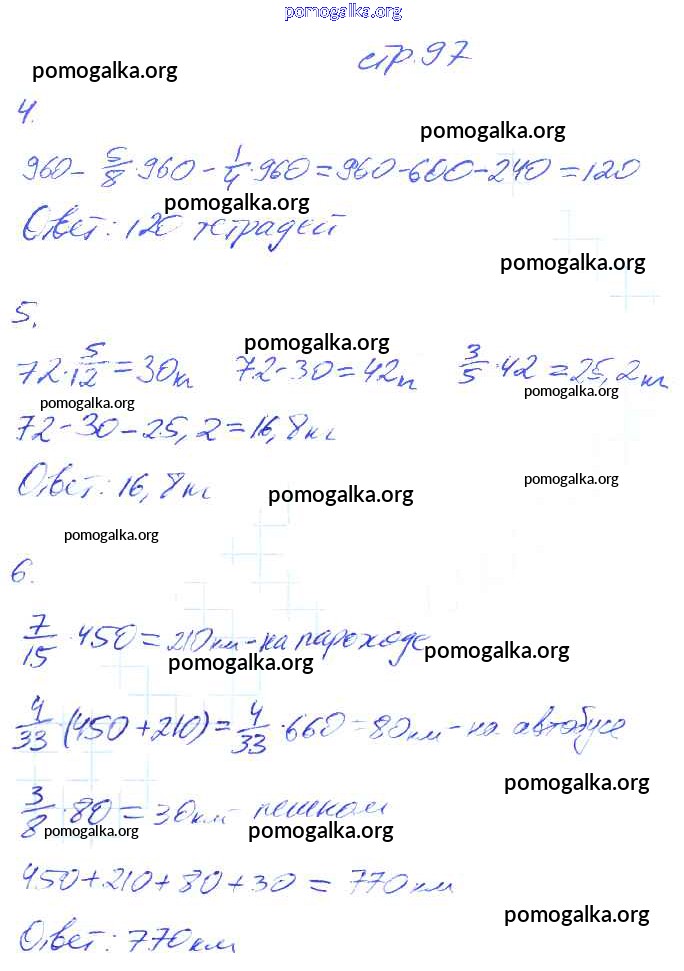 pomogalka.org
стр. 97
pomogalka.org
4.
pomogalka.org
960 - 5/8 · 960 - 1/4 · 960 = 960 - 600 - 240 = 120
pomogalka.org
Ответ: 120 тетрадей
pomogalka.org
5.
pomogalka.org
72 · 5/12 = 30 кг 72 - 30 = 42 кг 3/5 · 42 = 25,2 кг
pomogalka.org pomogalka.org
72 - 30 - 25,2 = 16,8 кг
Ответ: 16,8 кг
pomogalka.org pomogalka.org
pomogalka.org
6.
7/15 · 450 = 210 км - на пароходе
pomogalka.org pomogalka.org
4/33 (450 + 210) = 4/33 · 660 = 80 км - на автобусе
pomogalka.org
3/8 · 80 = 30 км пешком
pomogalka.org pomogalka.org
450 + 210 + 80 + 30 = 770 км
pomogalka.org
Ответ: 770 км